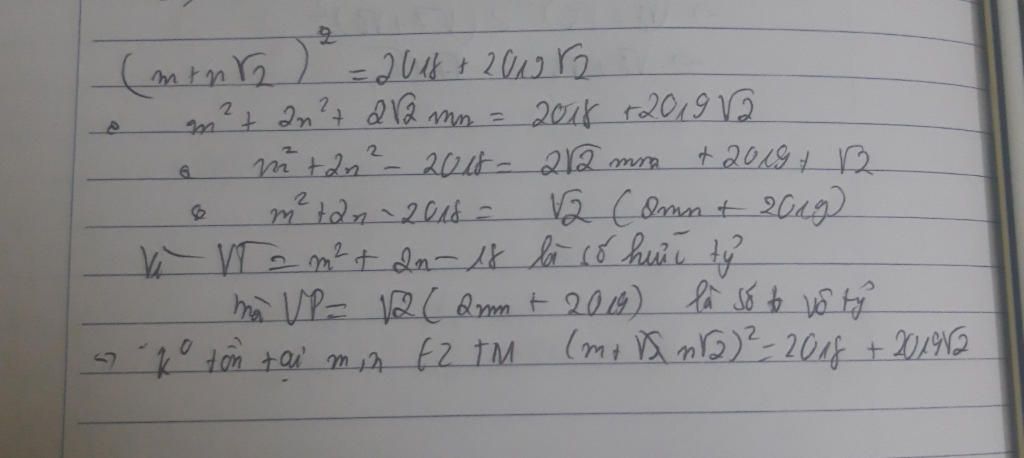 (m+n√2)² = 2018 + 2019√2
m² + 2n² + 2√2 mn = 2018 + 2019√2
m² + 2n² - 2018 = 2√2 mn + 2019 √2
m² + 2n - 2018 = √2 (2mn + 2019)
Vì VT = m² + 2n - 18 là số hữu tỷ
mà VP = √2 (2mn + 2019) là số vô tỷ
=> k° tồn tại m,n ∈ Z TM (m + n√2)² = 2018 + 2019√2